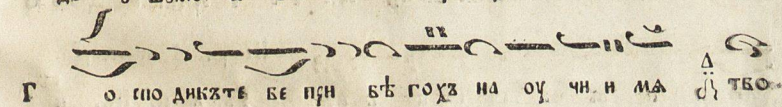 Г о спо дикъте бе при бѣ гохъ на оу чи и мѧ тво